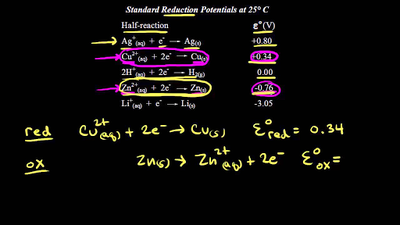 Standard Reduction Potentials at 25° C
Half-reaction ε°(V)
Ag⁺(aq) + e⁻ → Ag(s) +0.80
Cu²⁺(aq) + 2e⁻ → Cu(s) +0.34
2H⁺(aq) + 2e⁻ → H₂(g) 0.00
Zn²⁺(aq) + 2e⁻ → Zn(s) -0.76
Li⁺(aq) + e⁻ → Li(s) -3.05
red Cu²⁺(aq) + 2e⁻ → Cu(s) ε°red = 0.34
ox Zn(s) → Zn²⁺(aq) + 2e⁻ ε°ox =